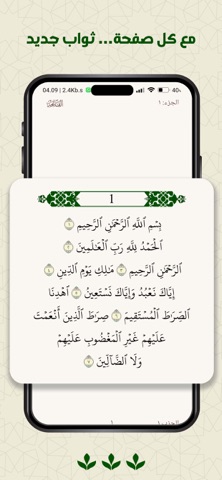 مع كل صفحة... ثواب جديد
04.09 | 2.4Kb/s
40
الجزء: ١
الفاتحة
1
بِسْمِ ٱللَّهِ ٱلرَّحْمَٰنِ ٱلرَّحِيمِ ١
ٱلْحَمْدُ لِلَّهِ رَبِّ ٱلْعَٰلَمِينَ ٢
ٱلرَّحْمَٰنِ ٱلرَّحِيمِ ٣ مَٰلِكِ يَوْمِ ٱلدِّينِ ٤
إِيَّاكَ نَعْبُدُ وَإِيَّاكَ نَسْتَعِينُ ٥ ٱهْدِنَا
ٱلصِّرَٰطَ ٱلْمُسْتَقِيمَ ٦ صِرَٰطَ ٱلَّذِينَ أَنْعَمْتَ
عَلَيْهِمْ غَيْرِ ٱلْمَغْضُوبِ عَلَيْهِمْ
وَلَا ٱلضَّآلِّينَ ٧
1
الجزء: ١